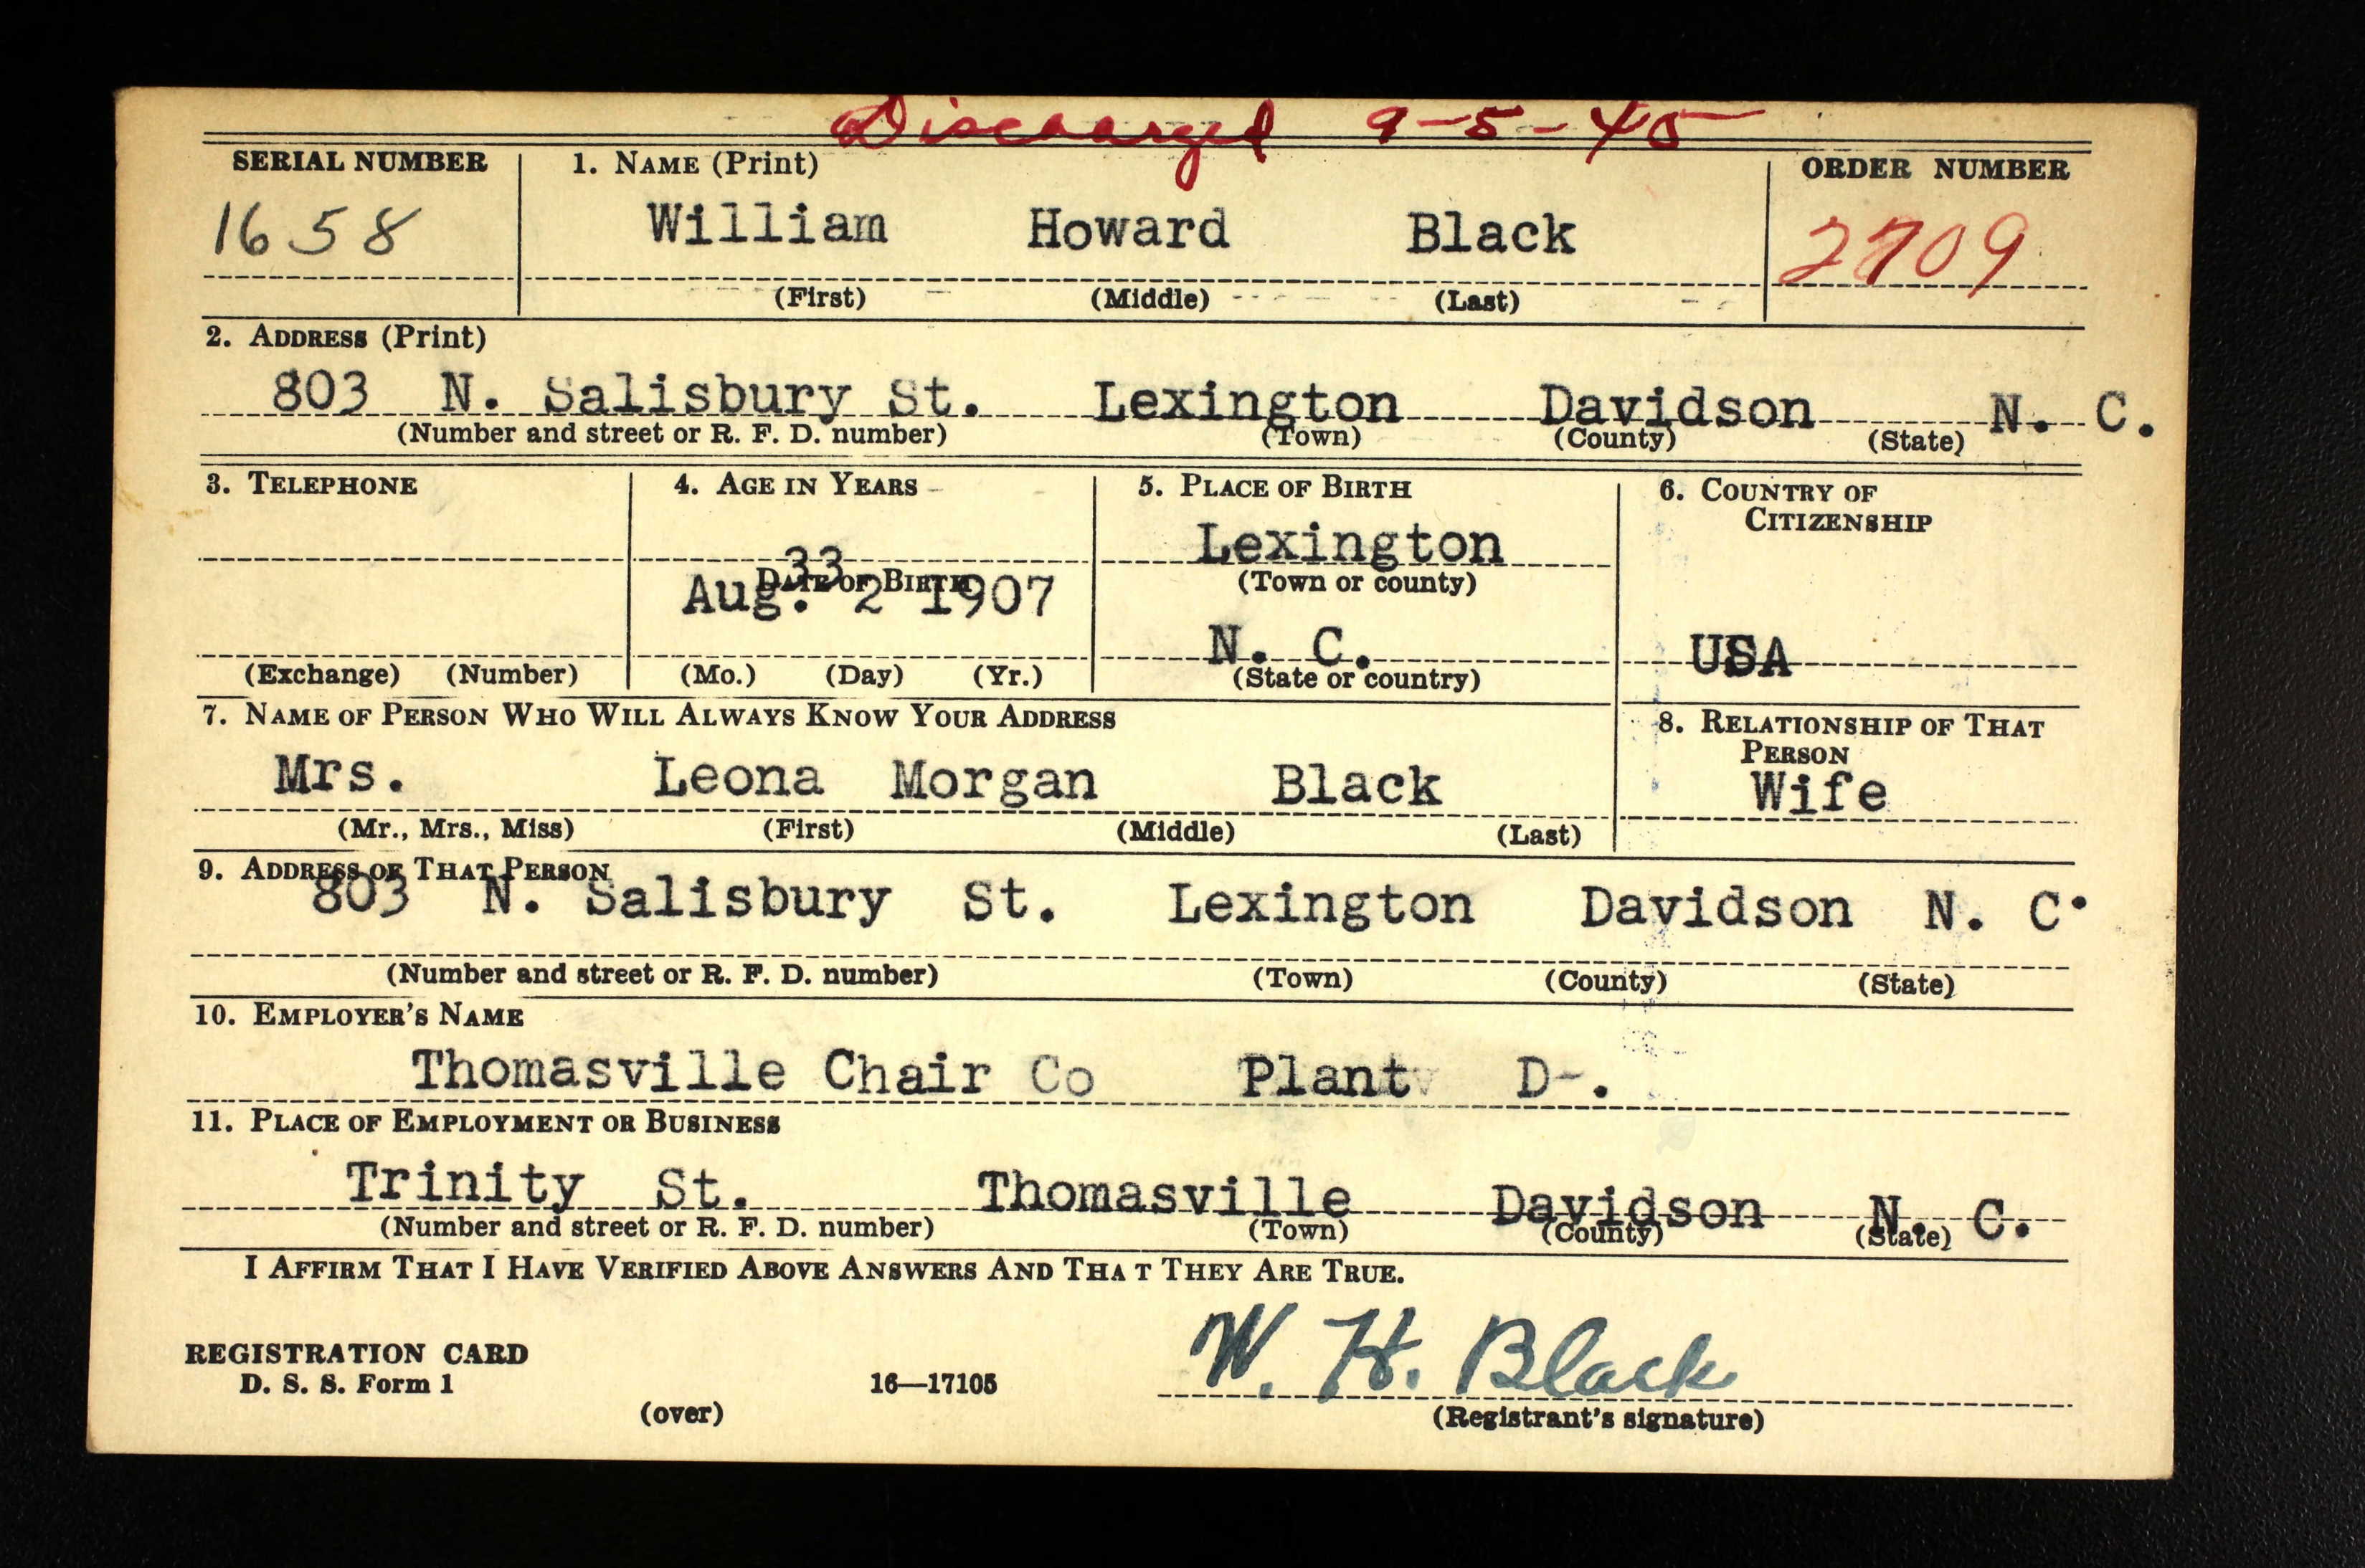 Discharged 9-5-45
SERIAL NUMBER 1. NAME (Print) ORDER NUMBER
1658 William Howard Black 2709
(First) (Middle) (Last)
2. ADDRESS (Print)
803 N. Salisbury St. Lexington Davidson N. C.
(Number and street or R. F. D. number) (Town) (County) (State)
3. TELEPHONE 4. AGE IN YEARS 5. PLACE OF BIRTH 6. COUNTRY OF
CITIZENSHIP
33 Lexington
DATE OF BIRTH (Town or county)
Aug. 2 1907
N. C. USA
(Exchange) (Number) (Mo.) (Day) (Yr.) (State or country)
7. NAME OF PERSON WHO WILL ALWAYS KNOW YOUR ADDRESS 8. RELATIONSHIP OF THAT
PERSON
Mrs. Leona Morgan Black Wife
(Mr., Mrs., Miss) (First) (Middle) (Last)
9. ADDRESS OF THAT PERSON
803 N. Salisbury St. Lexington Davidson N. C.
(Number and street or R. F. D. number) (Town) (County) (State)
10. EMPLOYER'S NAME
Thomasville Chair Co Plant D-.
11. PLACE OF EMPLOYMENT OR BUSINESS
Trinity St. Thomasville Davidson N. C.
(Number and street or R. F. D. number) (Town) (County) (State)
I AFFIRM THAT I HAVE VERIFIED ABOVE ANSWERS AND THA T THEY ARE TRUE.
W. H. Black
REGISTRATION CARD
D. S. S. Form 1 16—17105
(over) (Registrant's signature)